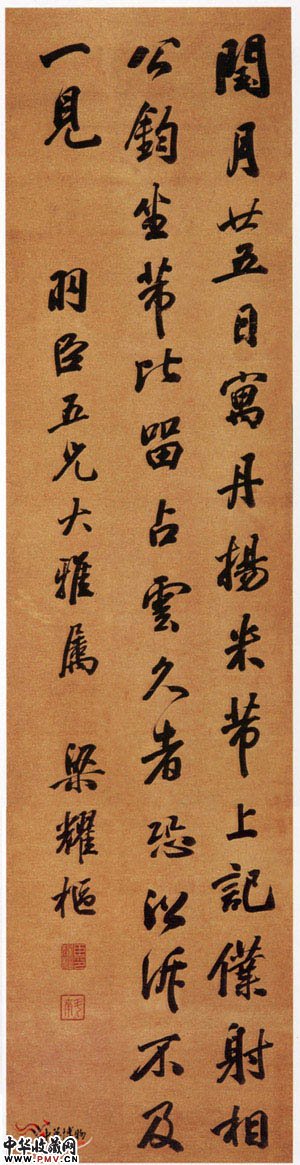 閏月廿五日寓丹楊米芾上記僕射相
公鈞坐芾比留占雲久者恐以泝不及
一見
羽臣五兄大雅属 梁耀樞
中华收藏网
www.PMV.CN